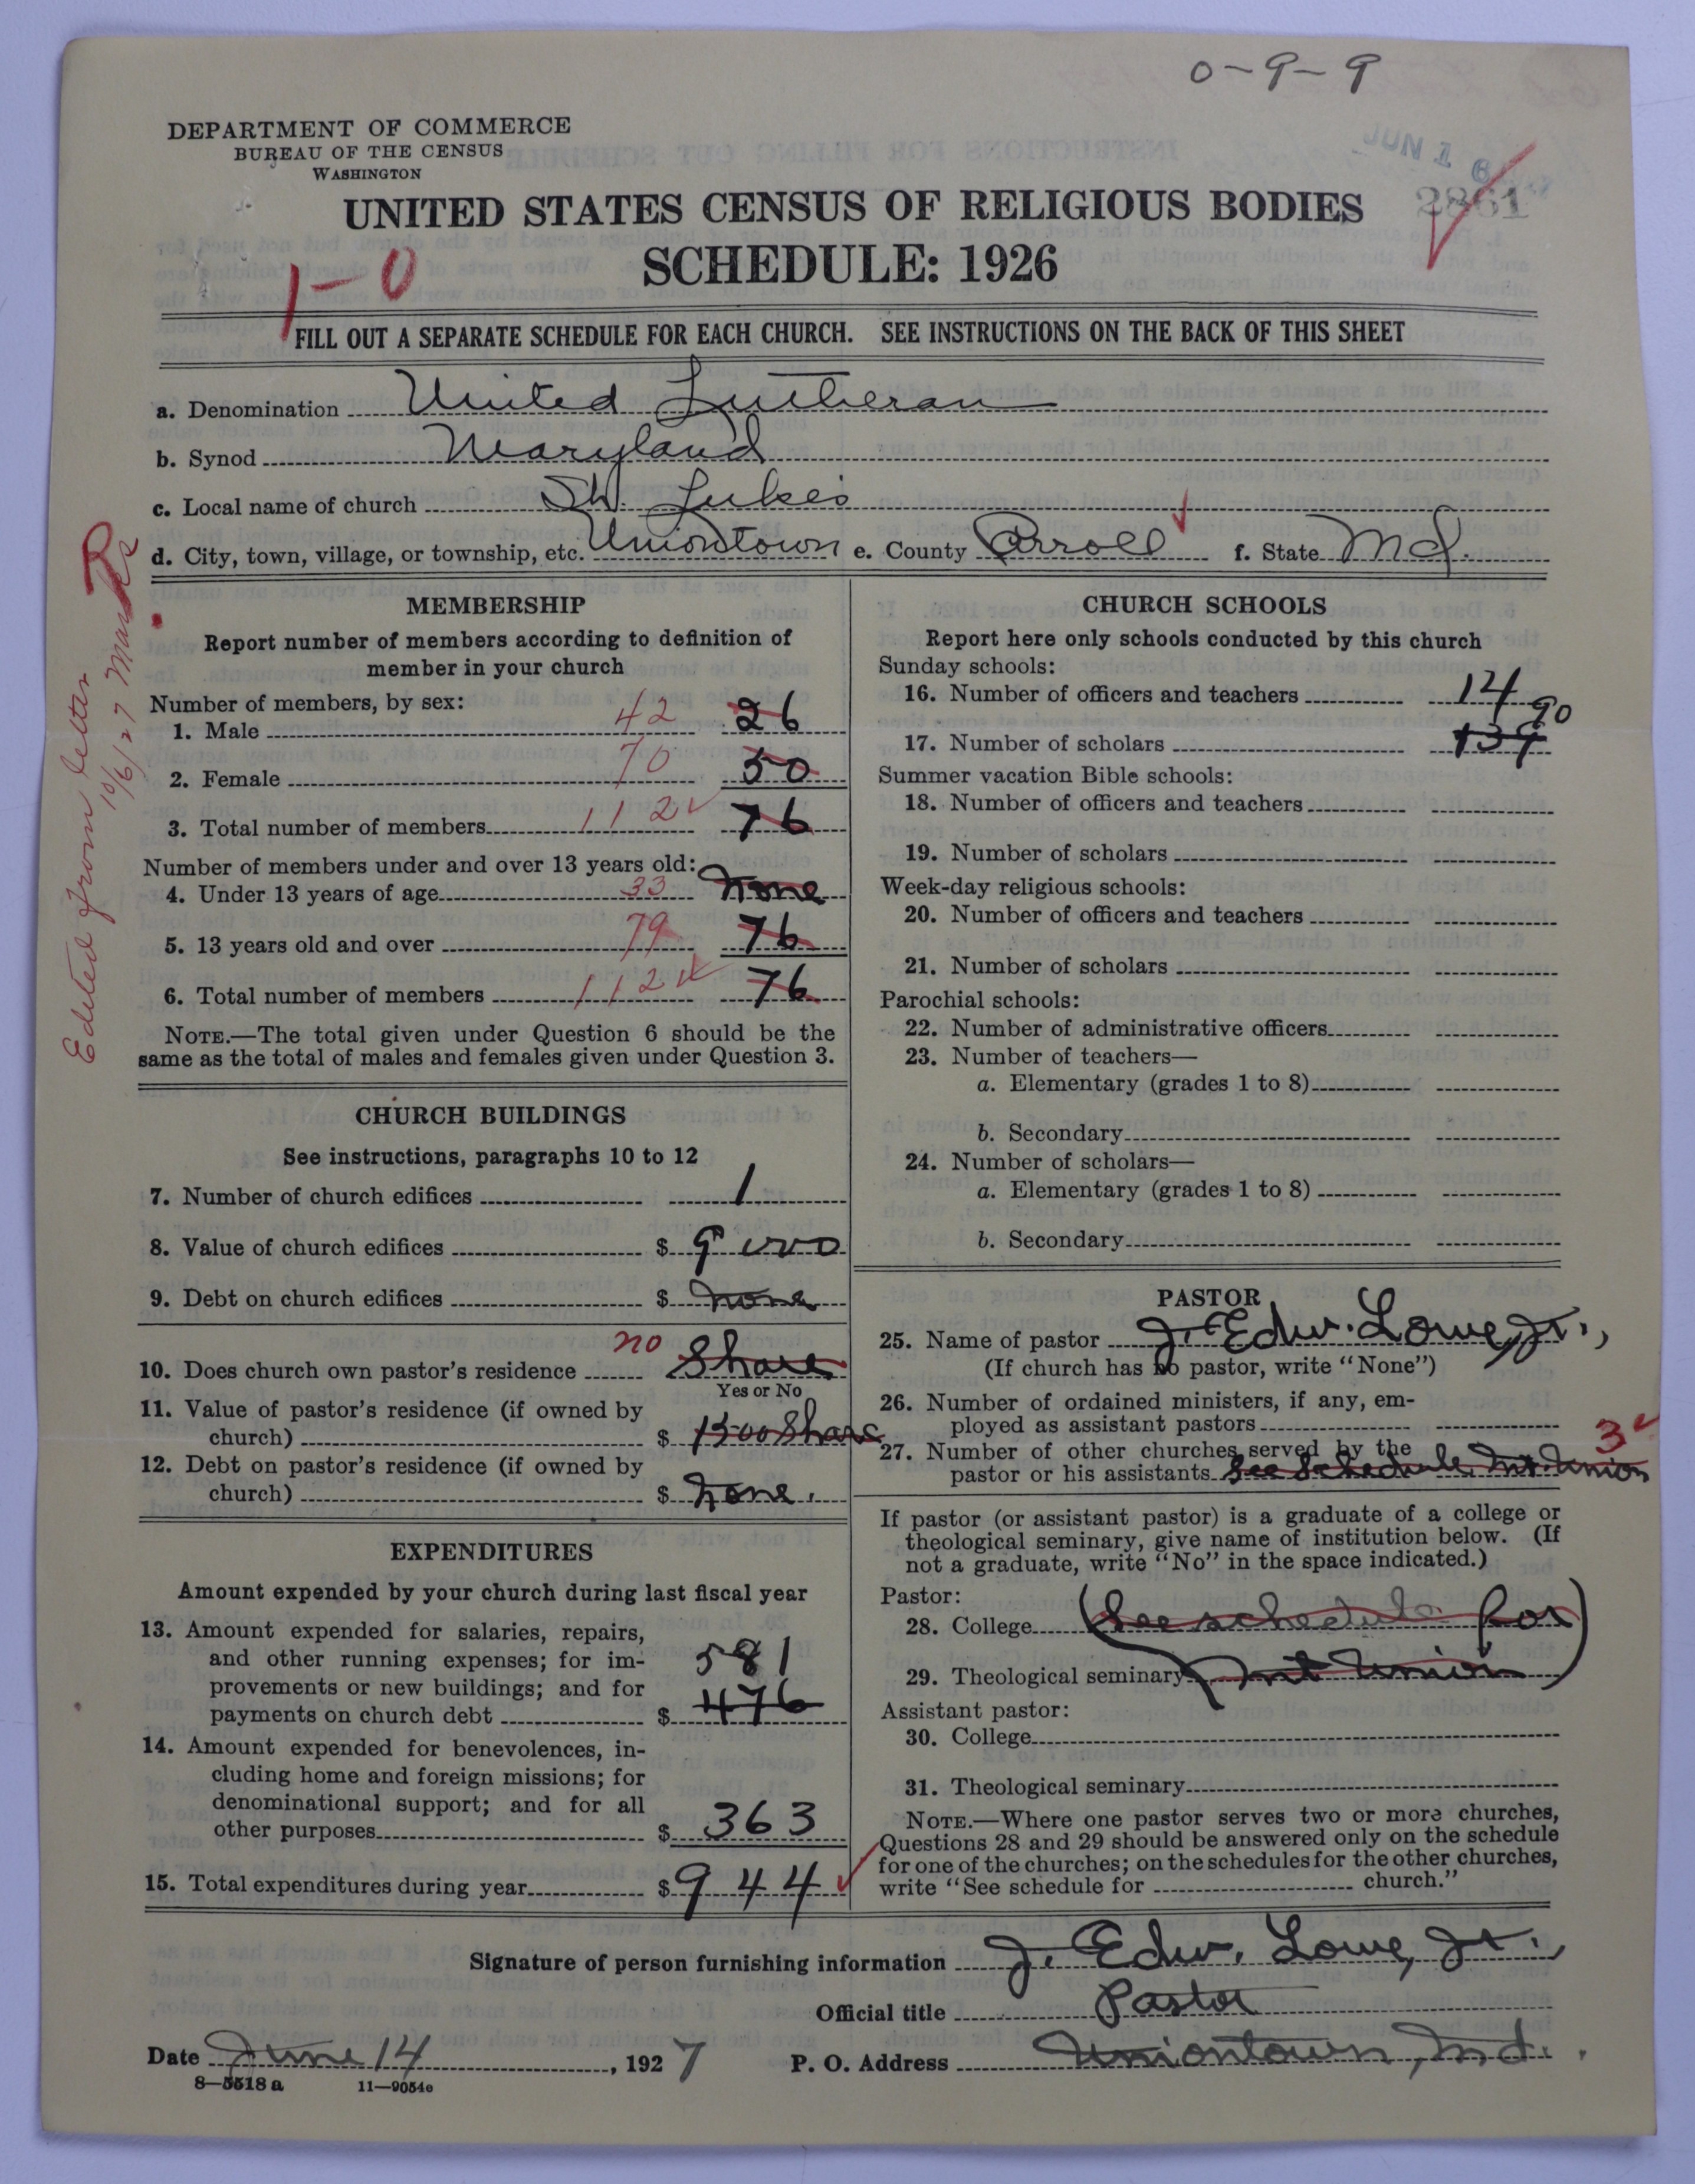 0-9-9
DEPARTMENT OF COMMERCE
BUREAU OF THE CENSUS
WASHINGTON
JUN 16
2861
UNITED STATES CENSUS OF RELIGIOUS BODIES
SCHEDULE: 1926
1-0
FILL OUT A SEPARATE SCHEDULE FOR EACH CHURCH. SEE INSTRUCTIONS ON THE BACK OF THIS SHEET
a. Denomination United Lutheran
b. Synod Maryland
c. Local name of church St. Luke's
d. City, town, village, or township, etc. Uniontown e. County Carroll f. State Md.
Edited from letter
10/6/27
MEMBERSHIP
Report number of members according to definition of
member in your church
Number of members, by sex:
1. Male 42 26
2. Female 70 50
3. Total number of members 112 76
Number of members under and over 13 years old:
4. Under 13 years of age 33 None
5. 13 years old and over 79 76
6. Total number of members 112 76
NOTE.—The total given under Question 6 should be the
same as the total of males and females given under Question 3.
CHURCH BUILDINGS
See instructions, paragraphs 10 to 12
7. Number of church edifices 1
8. Value of church edifices $ 9000
9. Debt on church edifices $ none
10. Does church own pastor's residence no Share
Yes or No
11. Value of pastor's residence (if owned by
church) $ 1500 Share
12. Debt on pastor's residence (if owned by
church) $ None.
EXPENDITURES
Amount expended by your church during last fiscal year
13. Amount expended for salaries, repairs,
and other running expenses; for im-
provements or new buildings; and for
payments on church debt $ 581 476
14. Amount expended for benevolences, in-
cluding home and foreign missions; for
denominational support; and for all
other purposes $ 363
15. Total expenditures during year $ 944
CHURCH SCHOOLS
Report here only schools conducted by this church
Sunday schools:
16. Number of officers and teachers 14
17. Number of scholars 139 90
Summer vacation Bible schools:
18. Number of officers and teachers
19. Number of scholars
Week-day religious schools:
20. Number of officers and teachers
21. Number of scholars
Parochial schools:
22. Number of administrative officers
23. Number of teachers—
a. Elementary (grades 1 to 8)
b. Secondary
24. Number of scholars—
a. Elementary (grades 1 to 8)
b. Secondary
PASTOR
25. Name of pastor J. Edw. Lowe, Jr.,
(If church has no pastor, write "None")
26. Number of ordained ministers, if any, em-
ployed as assistant pastors
27. Number of other churches served by the 3
pastor or his assistants See Schedule Mt. Union
If pastor (or assistant pastor) is a graduate of a college or
theological seminary, give name of institution below. (If
not a graduate, write "No" in the space indicated.)
Pastor:
28. College (See schedule for
29. Theological seminary Mt Union)
Assistant pastor:
30. College
31. Theological seminary
NOTE.—Where one pastor serves two or more churches,
Questions 28 and 29 should be answered only on the schedule
for one of the churches; on the schedules for the other churches,
write "See schedule for church."
Signature of person furnishing information J. Edw. Lowe, Jr.,
Official title Pastor
Date June 14, 1927 P. O. Address Uniontown, Md.
8—5518 a 11—9054e